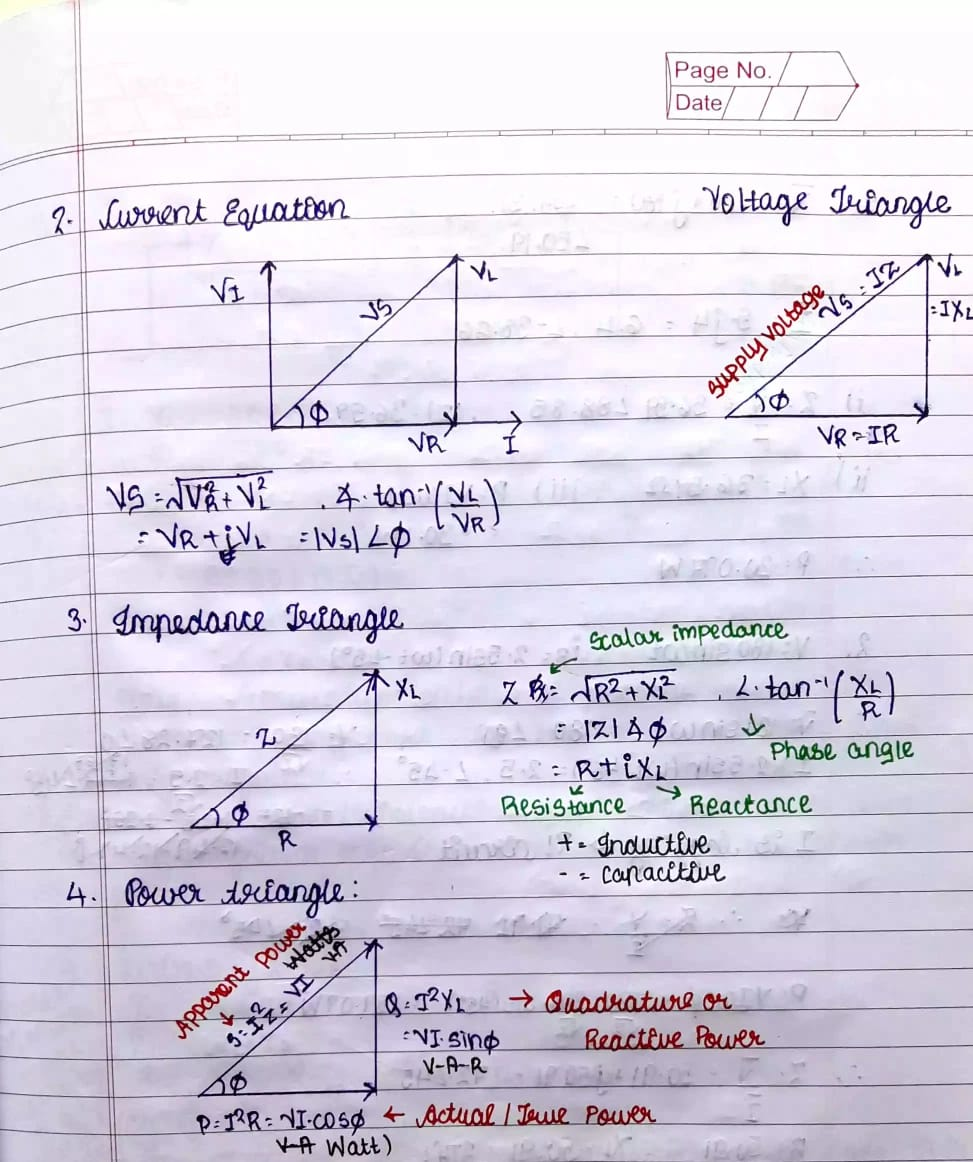 Page No.
Date
2. Current Equation
Voltage Triangle
VI
VS
VL
ϕ
VR
I
Supply voltage
VS = IZ
VL
= IXL
ϕ
VR = IR
VS = √VR² + VL² , ∡ · tan⁻¹ (VL/VR)
= VR + jVL = |VS| ∠ϕ
3. Impedance Triangle
Scalar impedance
Z
XL
ϕ
R
Z = √R² + XL² , ∠ · tan⁻¹ (XL/R)
= |Z| ∡ ϕ
Phase angle
= R + iXL
Resistance
Reactance
+ = Inductive
- = capacitive
4. Power triangle:
Apparent Power
Watts
VA
S = I²Z = VI
ϕ
Q = I²XL → Quadrature or
= VI · sinϕ Reactive Power
V-A-R
P = I²R = VI · cosϕ ← Actual / True Power
V-A Watt)